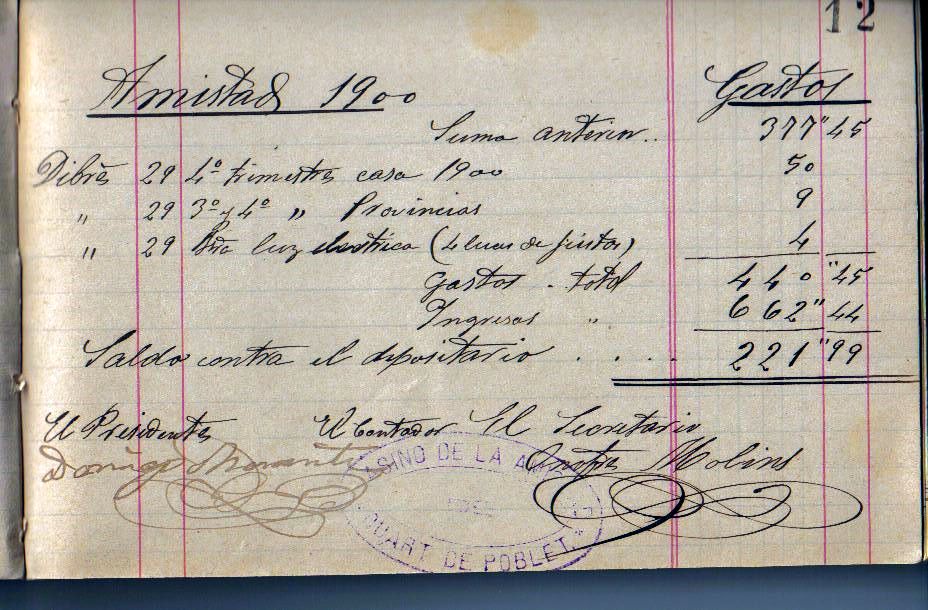 12
Amistad 1900 Gastos
Suma anterior.. 377"45
Dibre 29 4º trimestre casa 1900 50
" 29 3º y 4º " Provincias 9
" 29 luz electrica (4 luces de fiestas) 4
Gastos - total 440"45
Ingresos " 662"44
Saldo contra el depositario . . . . 221"99
El Presidente El Contador El Secretario
Domingo Molins
CASINO DE LA
CUART DE POBLET